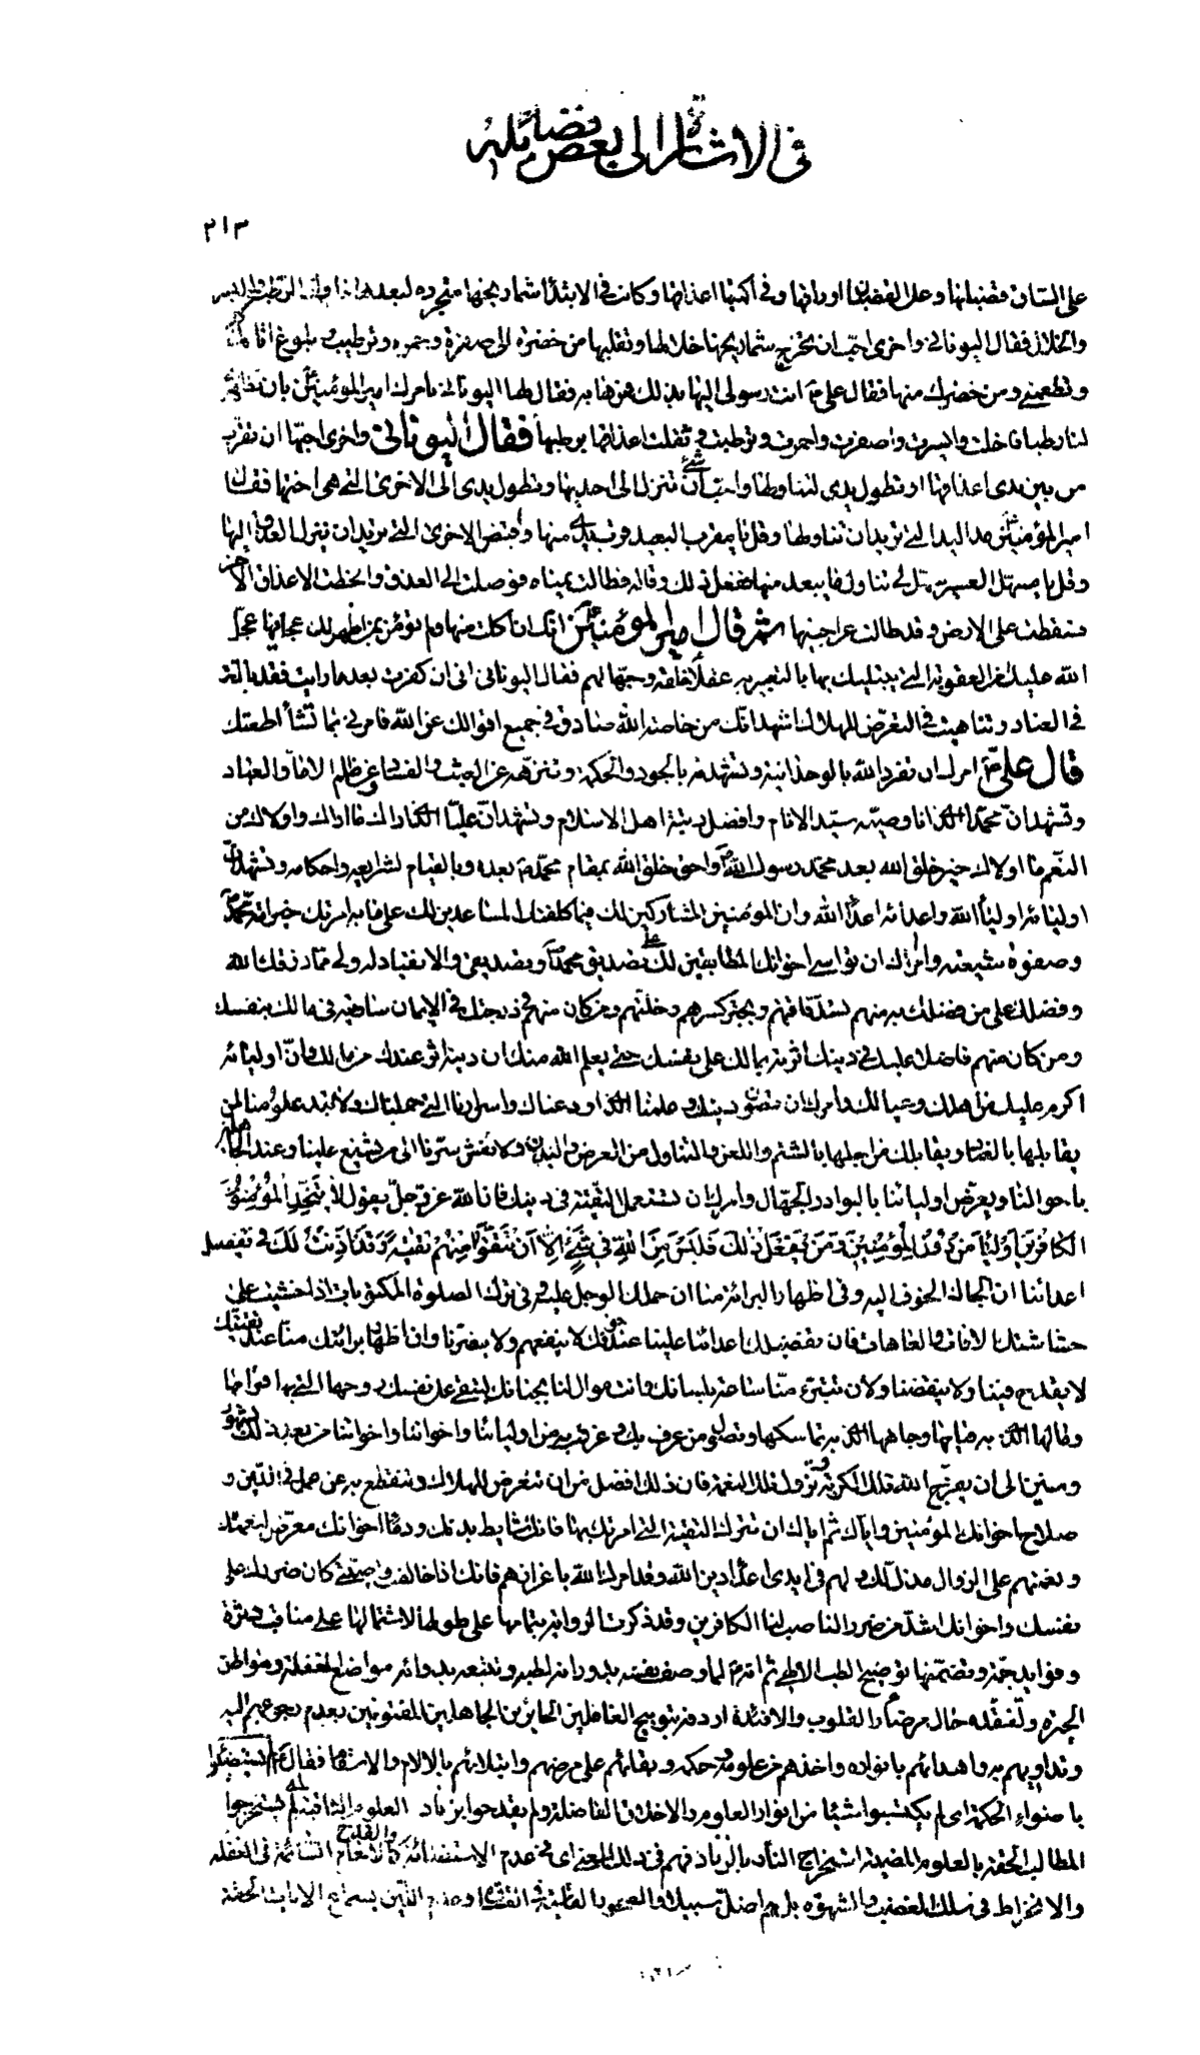 في الاشارة الى بعض فضائله
٢١٣
على الساق قضبانها وعلى القضبان اوراقها وفي امكنتها اعذاقها وكانت في الابتداء شماريخها متجردة لبعدها من اوان الرطب والبسر
والخلال فقال اليوناني واخرى احب ان تخرج شماريخها خلالها وتقلبها من خضرة الى صفرة وحمرة وترطيب وبلوغ
وتطعمني ومن حضرك منها فقال علي ع انت رسولي اليها بذلك فمرها به فقال لها اليوناني ما امرك امير المؤمنين بان
لنا رطبا فاخلت وابسرت واصفرت واحمرت وترطبت و ثقلت اعذاقها برطبها فقال اليوناني واخرى احبها ان تقرب
من بين يدي اعذاقها او تطول يدي لتناولها واحب شئ الي ان تنزل الى احديها وتطول يدي الى الاخرى التي هي اختها فقال
امير المؤمنين ع مد اليد التي تريد ان تناولها وقل يا مقرب البعيد قرب يدي منها واقبض الاخرى التي تريد ان تنزل العذق اليها
وقل يا مسهل العسير سهل لي تناول ما يبعد منها ففعل ذلك وقاله فطالت يمناه فوصلت الى العذق وانحطت الاعذاق الاخر
فسقطت على الارض وقد طالت عراجينها ثم قال امير المؤمنين ع انك ان اكلت منها ولم تؤمن بمن اظهر لك عجايبها عجل
الله عليك من العقوبة التي يبتليك بها ما يعتبر به عقلاء خلقه وجهالهم فقال اليوناني اني ان كفرت بعد ما رايت فقد بالغت
في العناد وتناهيت في التعرض للهلاك اشهد انك من خاصة الله صادق في جميع اقوالك عن الله فامرني بما تشاء اطعتك
قال علي ع امرك ان تفرد الله بالوحدانية وتشهد له بالجود والحكمة وتنزهه عن العبث والفساد وعن ظلم الاماء والعباد
وتشهد ان محمدا الذي انا وصيه سيد الانام وافضل رتبة اهل الاسلام وتشهد ان عليا الذي اراك ما اراك واولاك من
النعم ما اولاك خير خلق الله بعد محمد رسول الله ص واحق خلق الله بمقام محمد ص بعده وبالقيام لشرايعه واحكامه وتشهد ان
اوليائه اولياء الله واعدائه اعداء الله وان المؤمنين المشاركين لك فيما كلفتك المساعدين لك على ما به امرتك خير امة محمد ص
وصفوة شيعته وامرك ان تواسي اخوانك المطابقين لك على تصديق محمد ص وتصديقي والانقياد له ولي مما رزقك الله
وفضلك على من فضلك به منهم تسد فاقتهم وتجبر كسرهم وخلتهم ومن كان منهم في درجتك في الايمان ساويته في مالك بنفسك
ومن كان منهم فاضلا عليك في دينك اثرته بمالك على نفسك حتى يعلم الله منك ان دينه اثر عندك من مالك وان اوليائه
اكرم عليك من اهلك وعيالك وامرك ان تصون دينك وعلمنا الذي اودعناك واسرارنا التي حملناك ولا تبد علومنا لمن
يقابلها بالعناد ويقابلك من اجلها بالشتم واللعن والتناول من العرض والبدن ولا تفش سرنا الى من يشنع علينا وعند الجاهلين
باحوالنا ويعرض اوليائنا لبوادر الجهال وامرك ان تستعمل التقية في دينك فان الله عز وجل يقول لا يتخذ المؤمنون
الكافرين اولياء من دون المؤمنين ومن يفعل ذلك فليس من الله في شئ الا ان تتقوا منهم تقية وقد اذنت لك في تفضيل
اعدائنا ان الجاك الخوف اليه وفي اظهار البرائة منا ان حملك الوجل عليه وفي ترك الصلوة المكتوبات اذا خشيت على
حشاشتك الافات والعاهات فان تفضيلك اعدائنا علينا عند خوفك لا ينفعهم ولا يضرنا وان اظهارك برائتك منا عند تقيتك
لا يقدح فينا ولا ينقصنا ولان تتبرء منا ساعة بلسانك وانت موال لنا بجنانك لتبقي على نفسك روحها التي بها قوامها
ومالها الذي به قيامها وجاهها الذي به تماسكها وتصون من عرف بك وعرفت به من اوليائنا واخواننا واخواتنا من بعد ذلك بشهور
وسنين الى ان يفرج الله تلك الكربة وتزول تلك الغمة فان ذلك افضل من ان تتعرض للهلاك وتنقطع به عن عمل في الدين و
صلاح اخوانك المؤمنين واياك ثم اياك ان تترك التقية التي امرتك بها فانك شايط بدمك ودماء اخوانك معرض لنعمتك
ونعمتهم على الزوال مذل لك ولهم في ايدي اعداء دين الله وقد امرك الله باعزازهم فانك ان خالفت وصيتي كان ضررك على
نفسك واخوانك اشد من ضرر الناصب لنا الكافر بنا وقد ذكرت الرواية بتمامها على طولها لاشتمالها على مناقب دثرة
وفوايد جمة وتضمنها توضيح الطب الالهي ثم انه ع لما وصف نفسه بدوران لطبه وتتبعه بدوائه مواضع الغفلة ومواطن
الحيرة ولتفقده حال مرضاء القلوب والافئدة اردفه بتوبيخ الغافلين الحائرين الجاهلين المفتونين بعدم رجوعهم اليه
وتداويهم به واهتدائهم بانواره واخذهم من علومه وحكمه وبقائهم على مرضهم وابتلائهم بالالام والاسقام فقال ع لم يستضيئوا
باضواء الحكمة اي لم يكتسبوا شيئا من انوار العلوم والاخلاق الفاضلة ولم يقدحوا بزناد العلوم الثاقبة اي لم يستخرجوا
المطالب الحقة بالعلوم المضيئة استخراج النار بالزناد فهم في ذلك المعنى اي في عدم الاستضائة والقدح كالانعام السائمة في الغفلة
والانخراط في سلك الغضب والشهوة بل هم اضل سبيلا والصخور القاسية في القساوة وعدم اللين بسماع الايات الحقة